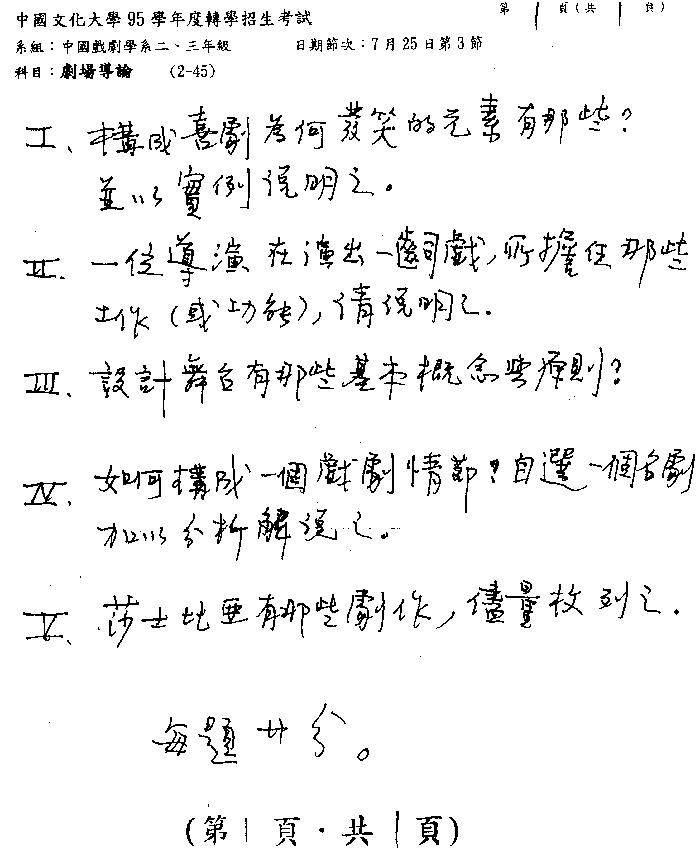 中國文化大學95學年度轉學招生考試 第1頁(共1頁)
系組：中國戲劇學系二、三年級 日期節次：7月25日第3節
科目：劇場導論 (2-45)
I、構成喜劇為何發笑的元素有那些？
並以實例說明之。
II、一位導演在演出一齣戲，所擔任那些
工作（或功能），請說明之.
III、設計舞台有那些基本概念與原則？
IV、如何構成一個戲劇情節？自選一個名劇
加以分析解說之。
V、莎士比亞有那些劇作，儘量枚列之.
每題廿分。
(第1頁·共1頁)